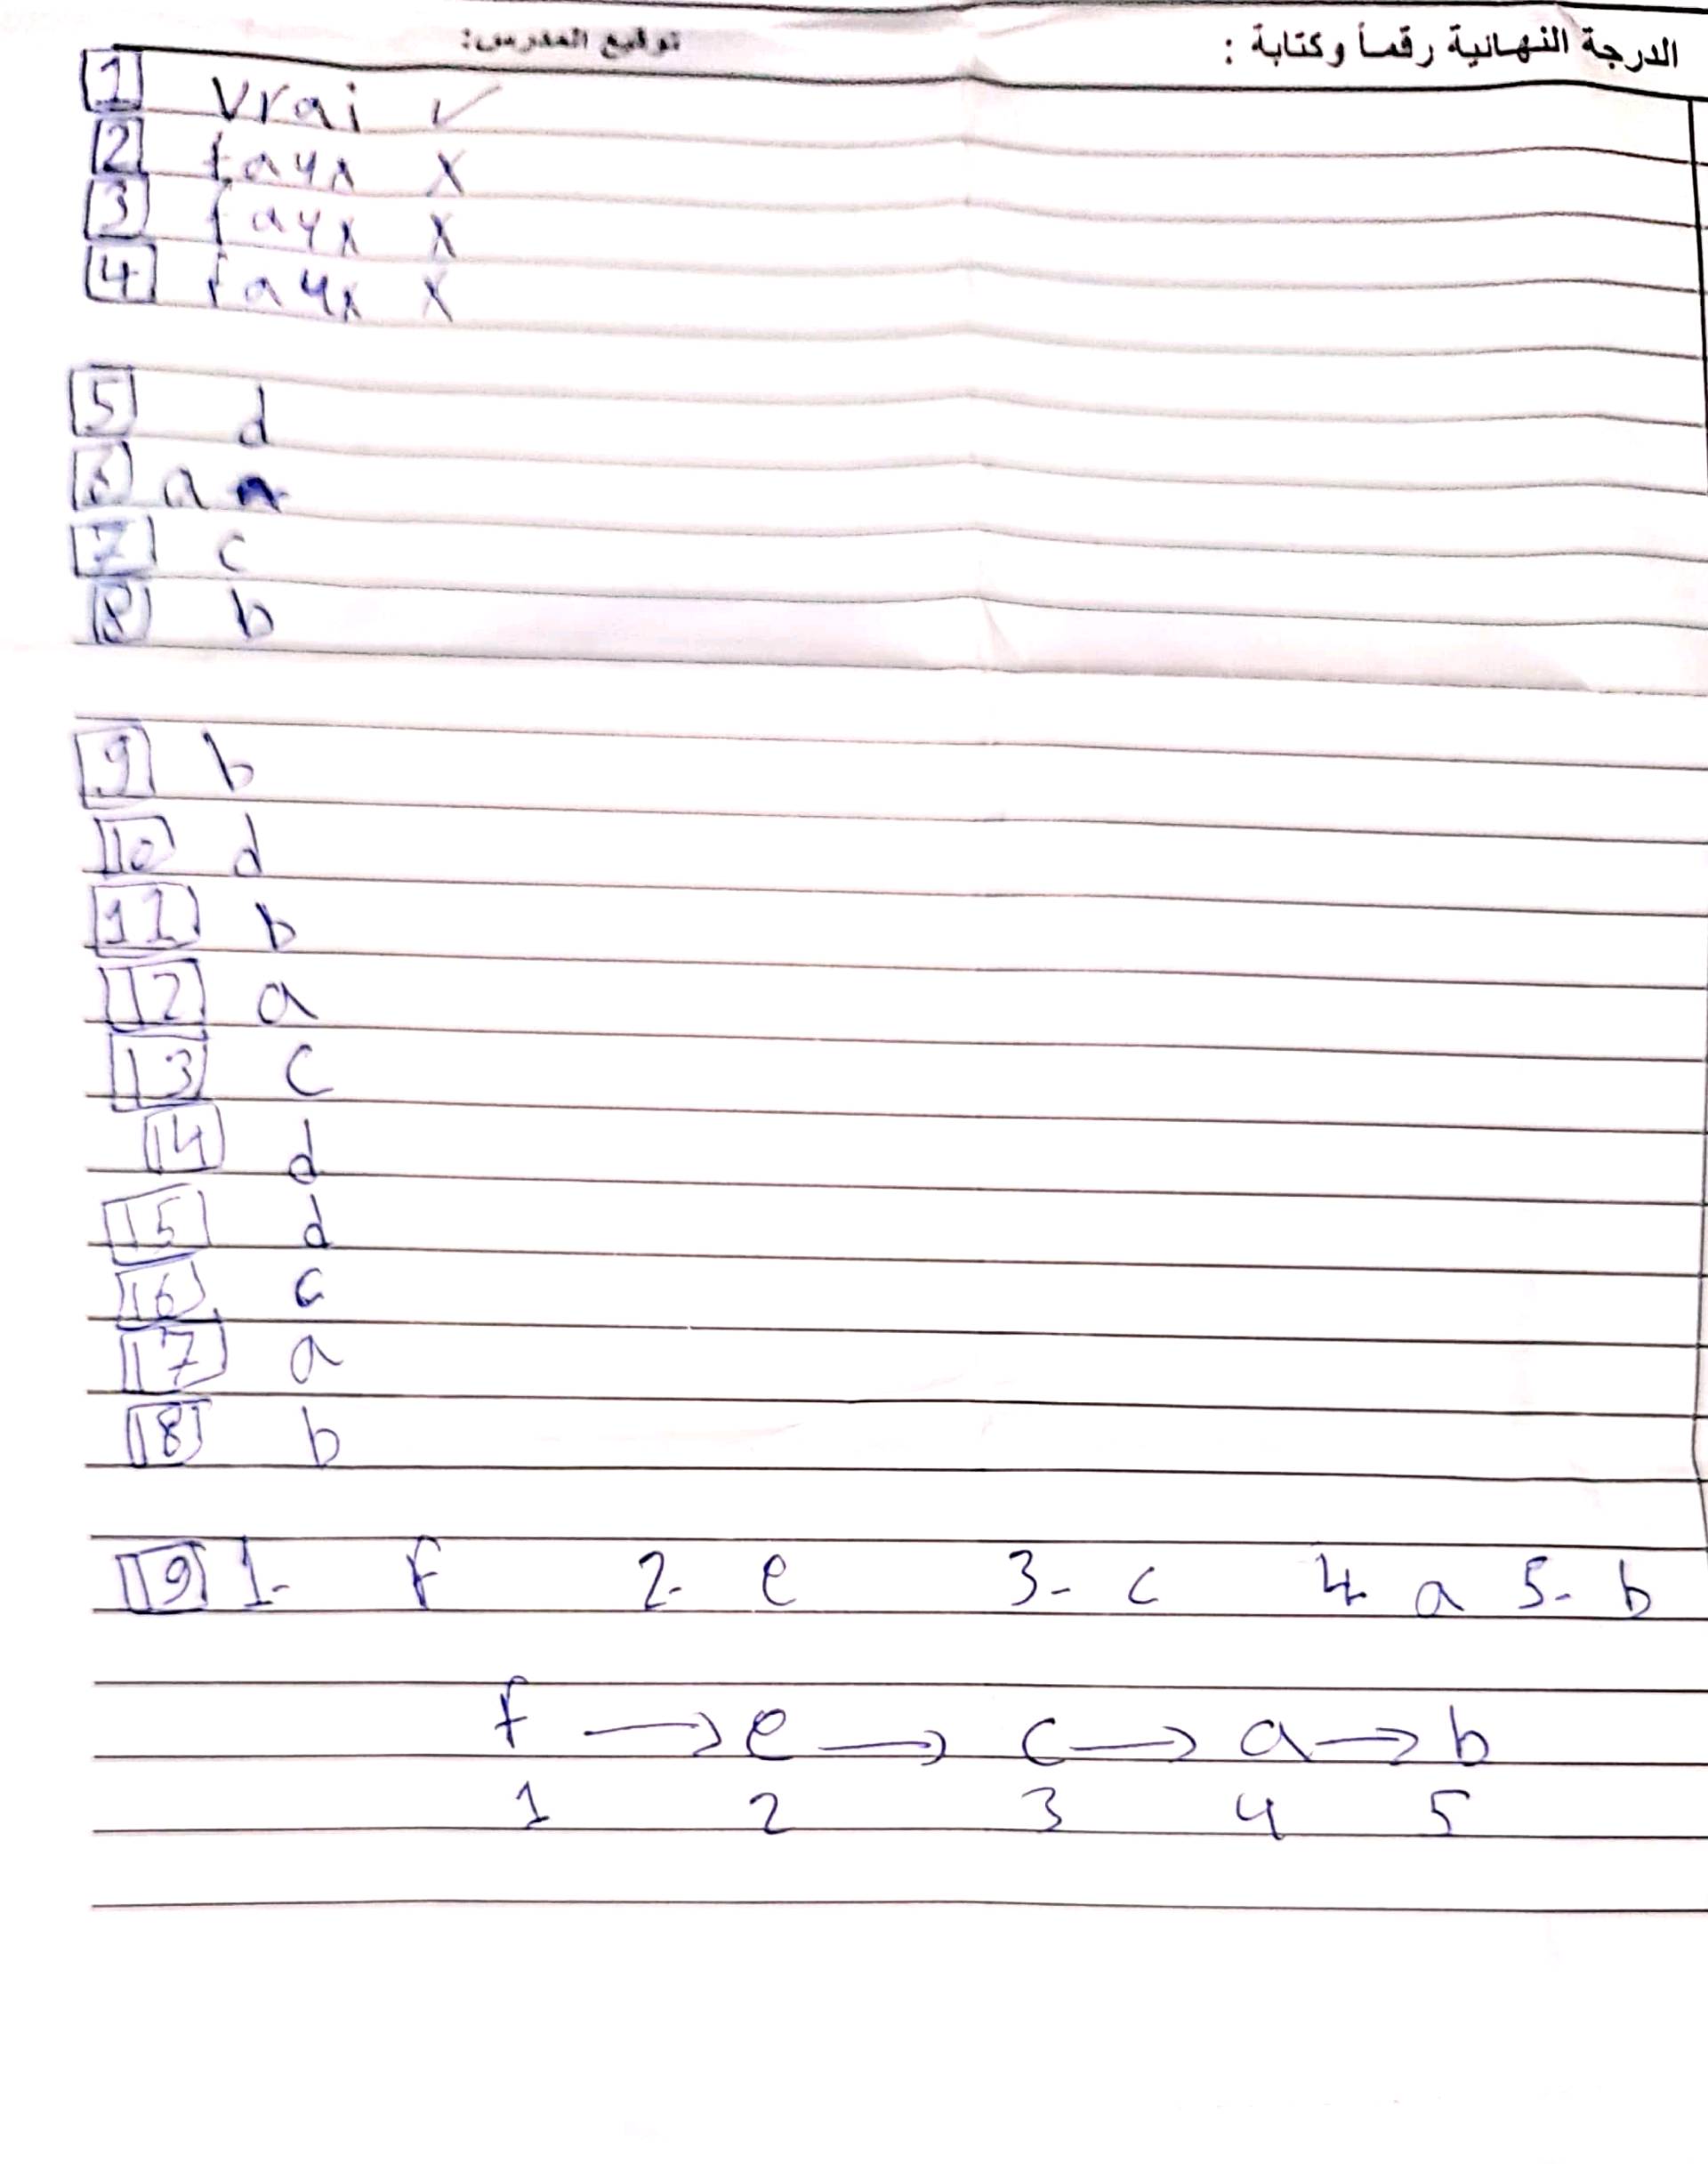 الدرجة النهائية رقماً وكتابة : توقيع المدرس:
1 Vrai ✓
2 faux X
3 faux X
4 faux X
5 d
6 a
7 c
8 b
9 b
10 d
11 b
12 a
13 c
14 d
15 d
16 c
17 a
18 b
19 1- f 2- e 3- c 4- a 5- b
f → e → c → a → b
1 2 3 4 5